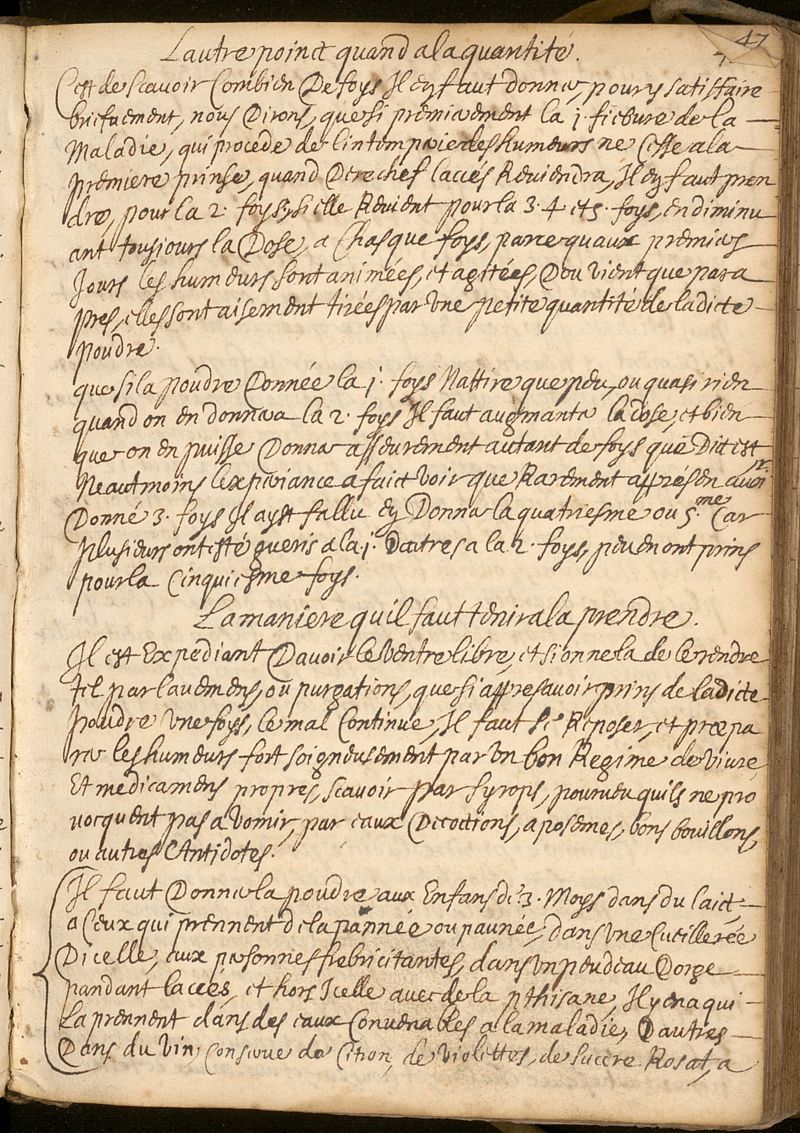 47
Lautre poinct quand a la quantité.
C'est de scavoir Combien De foys Il ey faut donner, pour y satisfaire
briefuement, nous Dirons, que si premierement la j. fiebure de la
Maladie, qui procede de lintemperie des humeurs ne Cesse a la
premiere prinse, quand Derechef lacces Reviendra, Il ey faut pren
dre, pour la 2. foys, si elle Revient pour la 3. 4 et 5. foys, en diminu
ant tousjours la Dose, a Chasque foys, parce quaux premiers
Jours les humeurs sont animées, et agitées, Dou vient que par a
pres, elles sont aisement tirées par une petite quantité de ladicte
poudre.
que si la poudre Donnée la j. foys Nattire que peu, ou quasi rien
quand on en donnera la 2. foys Il faut augmanter la dose, et bien
que on en puisse Donner asseurement autant de foys que Dit est
Neautmoins lexperiance a faict voir que Rarement appres en avoir
Donné 3. foys Il ayst fallu ey Donner la quatriesme ou 5.me Car
plusieurs ont esté gueris a la j. Dautres a la 2. foys, peu en ont prins
pour la Cinquiesme foys.
La maniere quil faut tenir a la prendre.
Il est Expediant Davoir le ventre libre, et si on ne la de le rendre
tel par lavemens, ou purgations, que si appres avoir prins de ladicte
poudre une foys, le mal Continue, Il faut se Reposer, et præpa
rer les humeurs fort soigneusement par un bon Regime de vivre,
Et medicamens propres, scavoir par syrops, pourveu quils ne pro
vocquent pas a vomir, par eaux Decoctions, aposemes, bons bouillons,
ou autres Antidotes.
Il faut Donner la poudre aux Enfans de 3. Moys dans du laict,
a Ceux qui prennent de la pannée ou paunée, dans une Cueillerée
Dicelle, aux personnes febricitantes, dans un peu deau Dorge
pandant lacces, et hors Icelle avec de la pthisane, Il y en a qui
La prennent dans des eaux Convenables a la maladie, Dautres
Dans du vin, conserve de Citron, de violettes, de succre Rosat, a